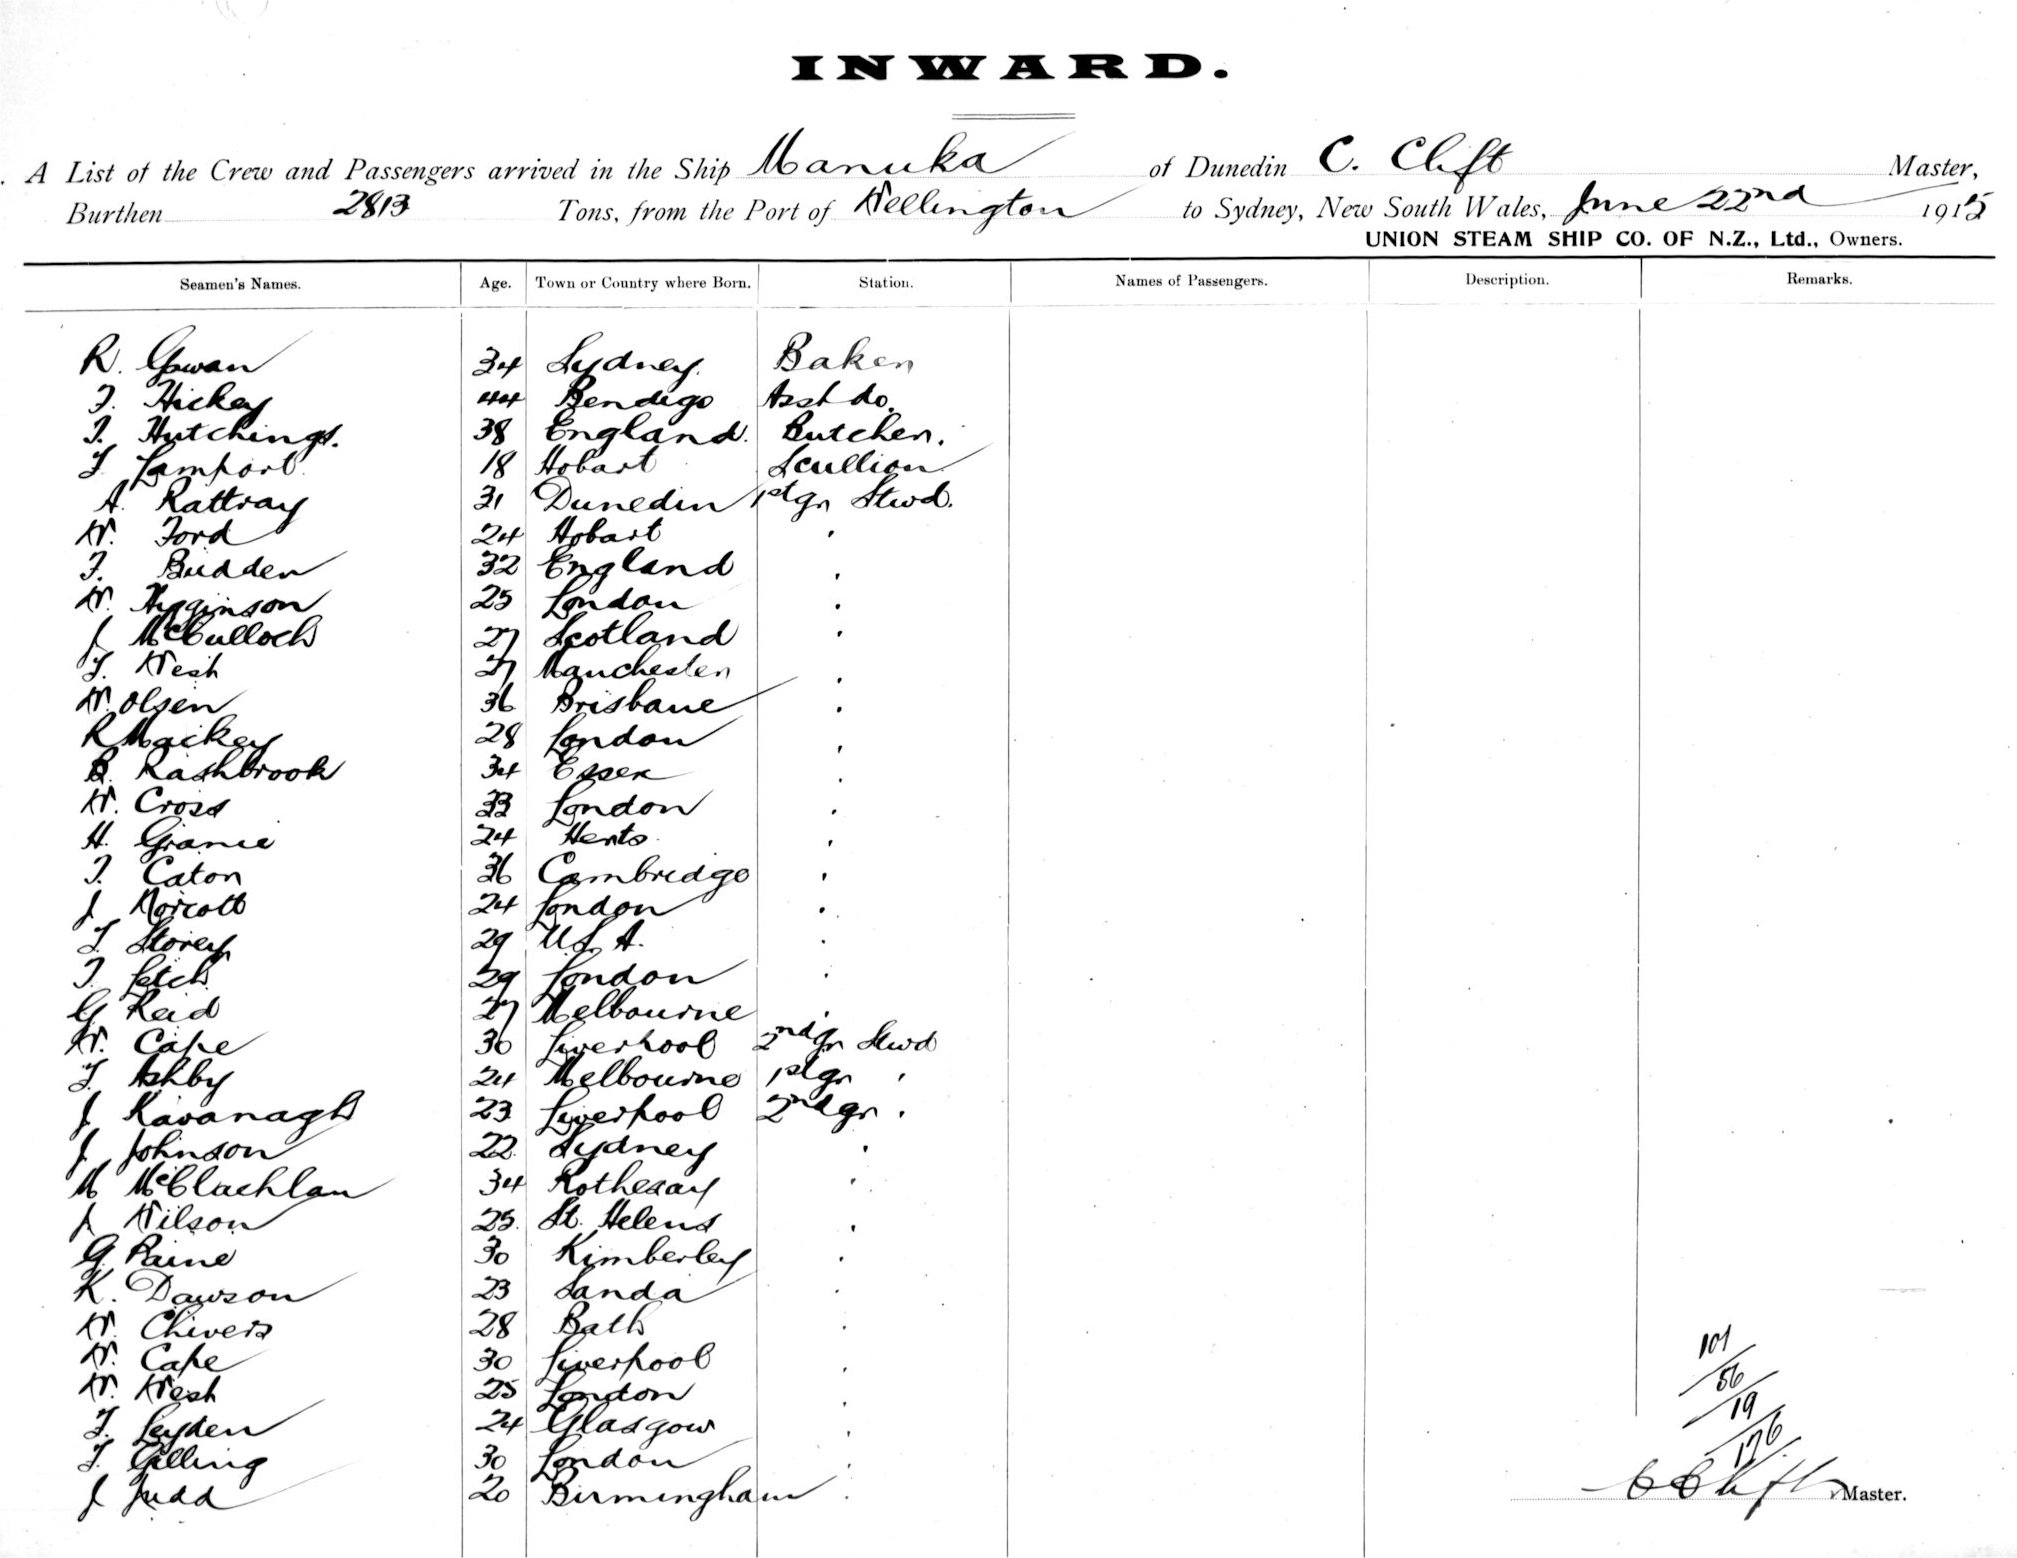 INWARD.
A List of the Crew and Passengers arrived in the Ship Manuka of Dunedin C. Clift Master,
Burthen 2813 Tons, from the Port of Wellington to Sydney, New South Wales, June 22nd 1915
UNION STEAM SHIP CO. OF N.Z., Ltd., Owners.
Seamen's Names. Age. Town or Country where Born. Station. Names of Passengers. Description. Remarks.
R. Gowan 34 Sydney. Baker
F. Hickey 44 Bendigo Asst do.
T. Hutchings. 38 England. Butcher.
T. Lamport. 18 Hobart Scullion
A. Rattray 31 Dunedin 1st gr Stwd.
W. Ford 24 Hobart
F. Budden 32 England
W. Higginson 25 London
J McCulloch 27 Scotland
T. West 27 Manchester
W. Olsen 36 Brisbane
R Mackey 28 London
B. Rashbrook 34 Essex
W. Cross 33 London
H. 24 Herts.
T. Caton 36 Cambridge
J Norcott 24 London
T. Storey 29 U.S.A.
T. Letch 29 London
G Reid 27 Melbourne
W. Cape 30 Liverpool 2nd gr Stwd
T. Ashby 24 Melbourne 1st gr "
J Kavanagh 23 Liverpool 2nd gr "
J Johnson 22 Sydney
M McClachlan 34 Rothesay
J Wilson 25 St. Helens
G. Paine 30 Kimberley
K. Dawson 23 Sanda
W. Chivers 28 Bath
W. Cape 30 Liverpool
W. West 25 London
T. Leyden 24 Glasgow
T. Gilling 30 London
J Judd 20 Birmingham
101
56
19
176
C Clift Master.